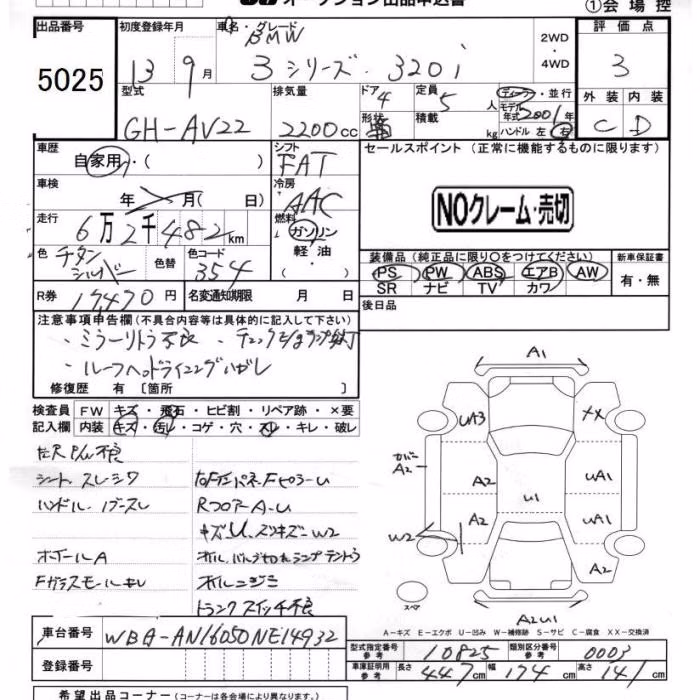 オークション出品申込書
①会場控
出品番号
5025
初度登録年月
13 9月
車名・グレード
BMW
3シリーズ・320i
2WD
・
4WD
評価点
3
外装 内装
C D
型式
GH-AV22
排気量
2200cc
ドア 4
形状
定員 5人
積載 kg
ディーラー・並行
モデル年式 2001年
ハンドル 左 右
車歴
自家用・( )
シフト
FAT
セールスポイント (正常に機能するものに限ります)
NOクレーム・売切
車検
年 月( 日)
冷房
AAC
走行
6万2千482km
燃料
ガソリン
軽油
・( )
色
チタンシルバー
色替
色コード
354
装備品 (純正品に限り○をつけてください)
PS PW ABS エアB AW
SR ナビ TV カワ
新車保証書
有・無
R券 17470円
名変通知期限 月 日
後日品
注意事項申告欄 (不具合内容等は具体的に記入して下さい)
・ミラーリトラ不良 ・チェックランプ点灯
・ルーフヘッドライニングハガレ
修復歴 有 [箇所 ]
検査員 FW キズ・飛石・ヒビ割・リペア跡・×要
記入欄 内装 キズ・汚レ・コゲ・穴・スレ・キレ・破レ
シート スレシワ
ハンドル・ノブスレ
RフロアーA-U
ホイールA
Fガラスモールキレ
オイルニジミ
トランクスイッチ不良
A1
UA3
XX
カバー
A2
A2
UA1
U1
A2
UA1
W2
A2
スペア
A2U1
A-キズ E-エクボ U-凹み W-補修跡 S-サビ C-腐食 XX-交換済
車台番号 WBA-AN16050NE14932
登録番号
型式指定番号 参考 10825
類別区分番号 参考 0003
車庫証明用 参考 長さ 447cm 幅 174cm 高さ 141cm
希望出品コーナー (コーナーは各会場により異なります。)